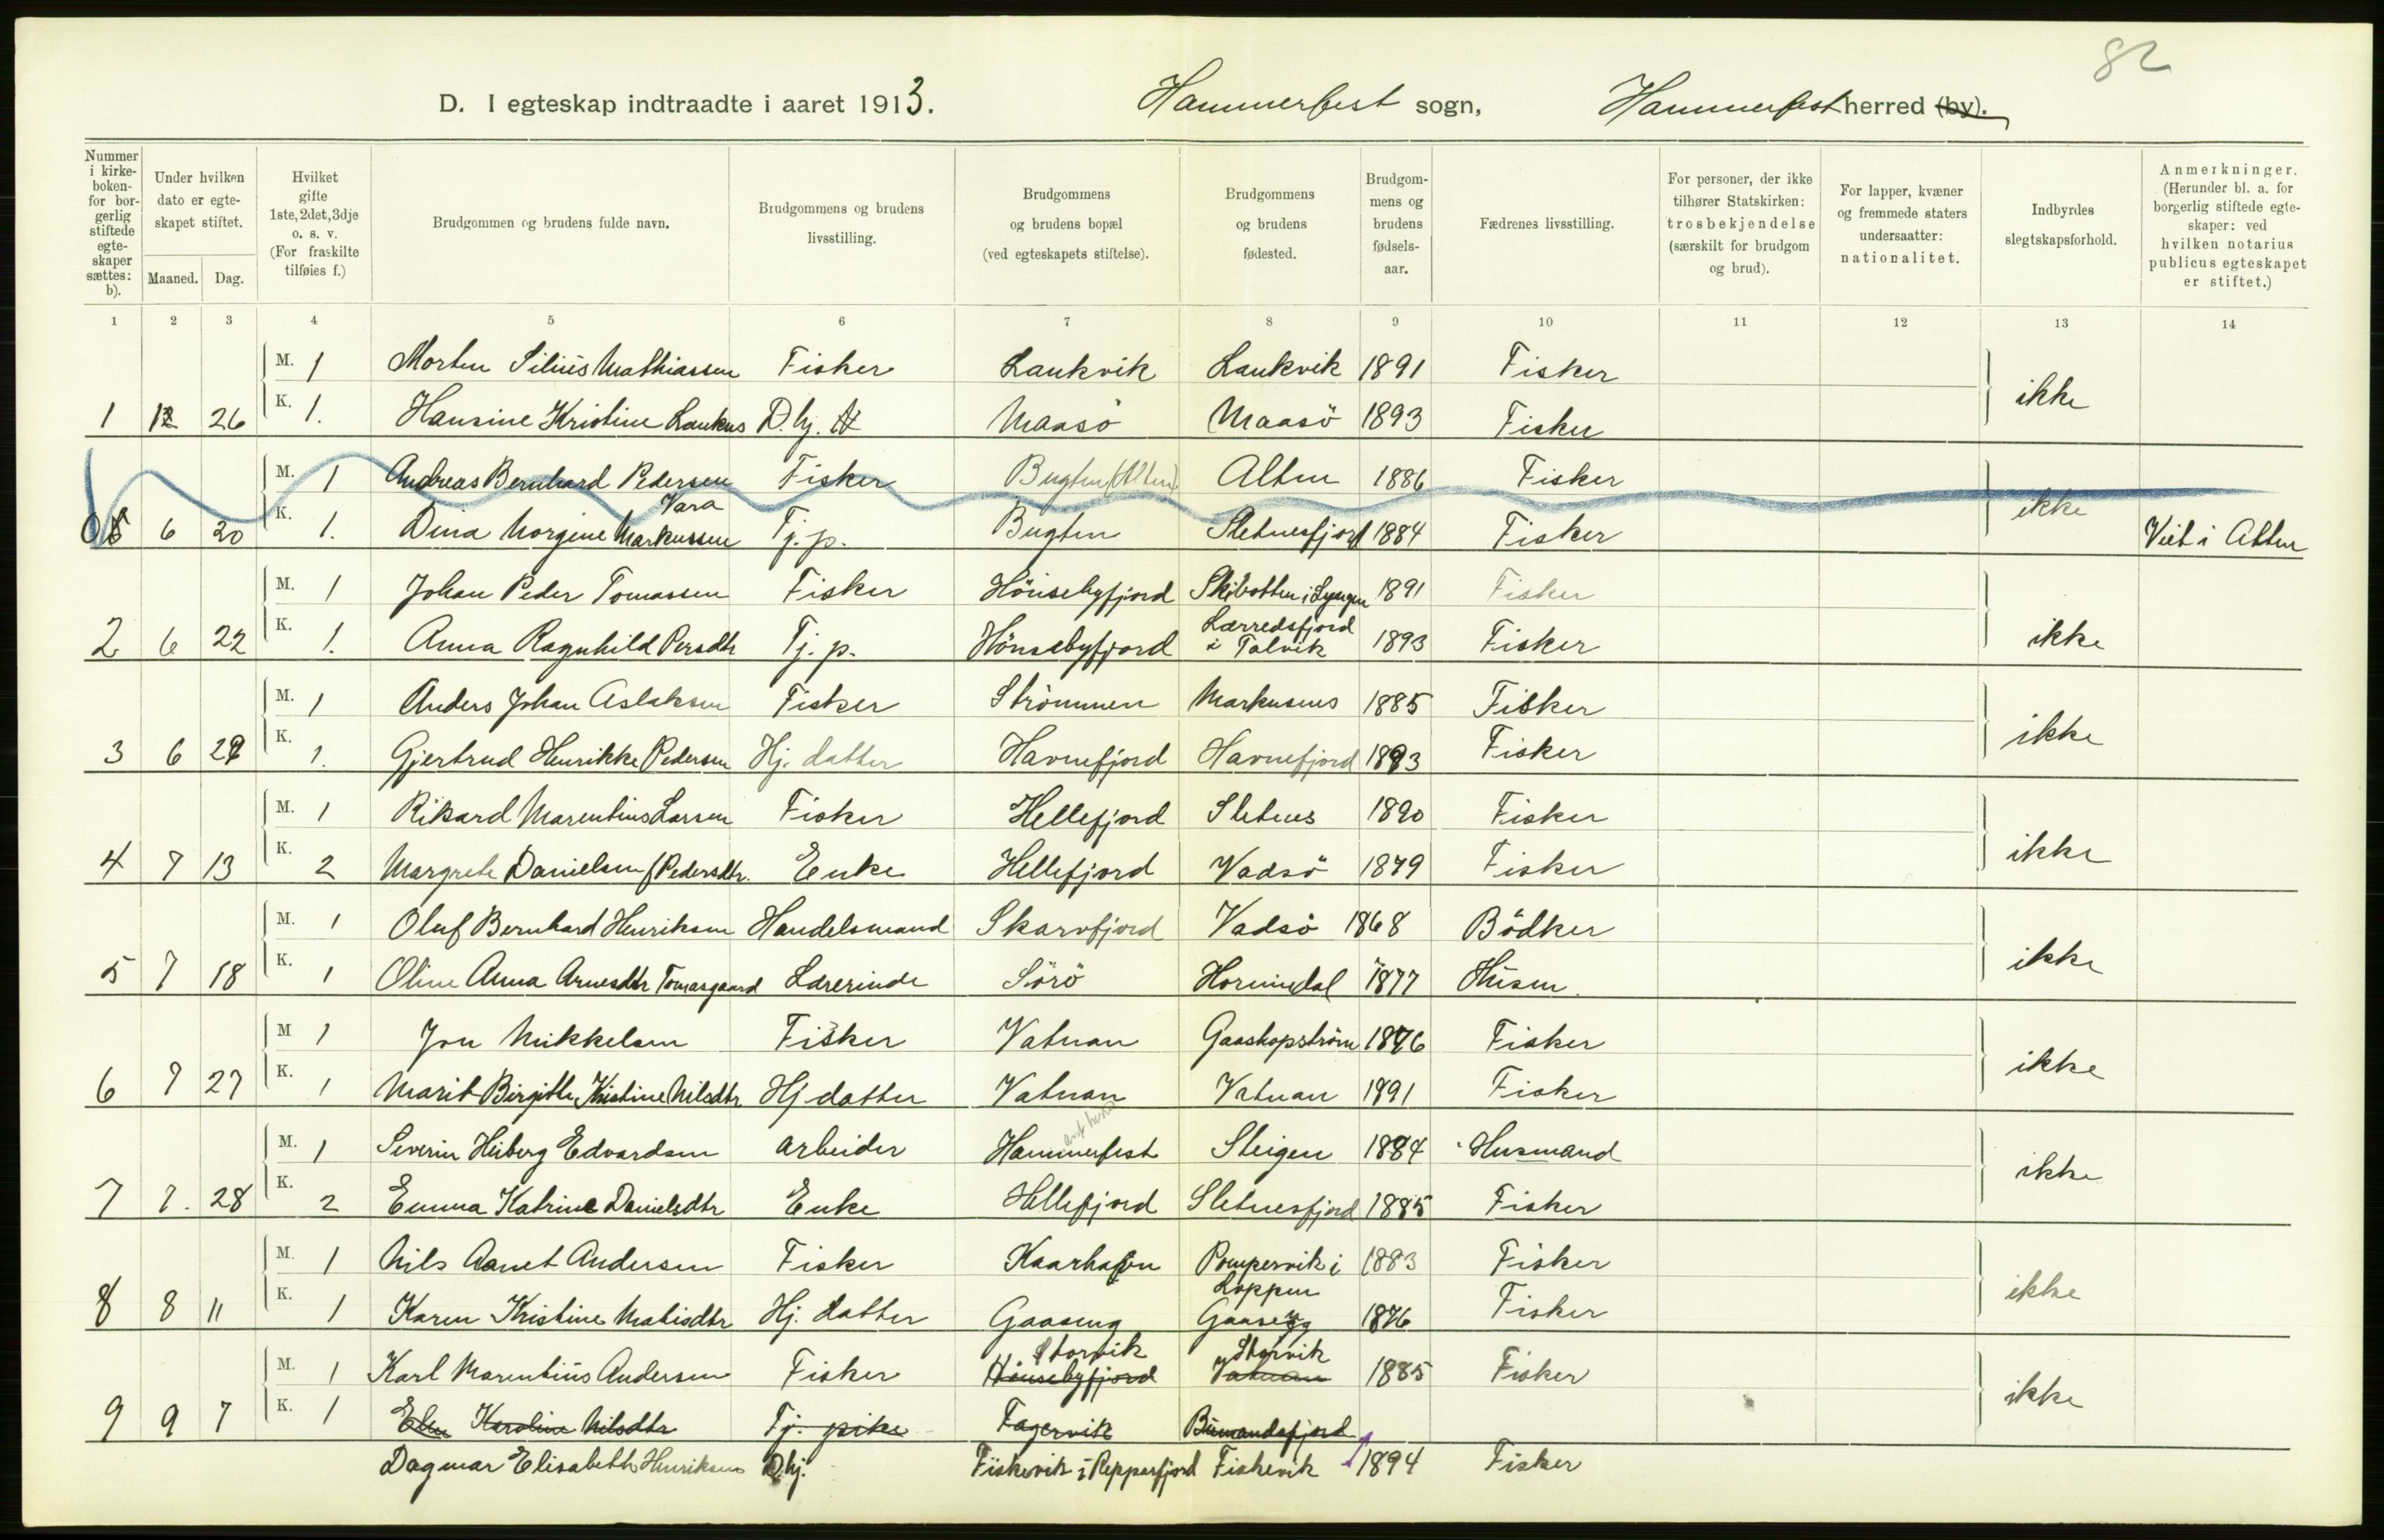 82
D. I egteskap indtraadte i aaret 1913. Hammerfest sogn, Hammerfest herred (by).
Nummer i kirkeboken- for borgerlig stiftede egteskaper sættes: b).
Under hvilken dato er egteskapet stiftet.
Maaned. Dag.
Hvilket gifte 1ste, 2det, 3dje o. s. v. (For fraskilte tilføies f.)
Brudgommen og brudens fulde navn.
Brudgommens og brudens livsstilling.
Brudgommens og brudens bopæl (ved egteskapets stiftelse).
Brudgommens og brudens fødested.
Brudgommens og brudens fødselsaar.
Fædrenes livsstilling.
For personer, der ikke tilhører Statskirken: trosbekjendelse (særskilt for brudgom og brud).
For lapper, kvæner og fremmede staters undersaatter: nationalitet.
Indbyrdes slegtskapsforhold.
Anmerkninger. (Herunder bl. a. for borgerlig stiftede egteskaper: ved hvilken notarius publicus egteskapet er stiftet.)
1 2 3 4 5 6 7 8 9 10 11 12 13 14
M. 1 Morten Silius Mathiassen Fisker Laukvik Laukvik 1891 Fisker ikke
1 12 26 K. 1. Hansine Kristine Laukus D. hj. Maasö Maasö 1893 Fisker
M. 1 Andreas Bernhard Pedersen Fisker Bugten (Alten) Alten 1886 Fisker ikke
6 20 K. 1. Dina Norgine Markussen Vara Tj. p. Bugten Sletnesfjord 1884 Fisker Viet i Alten
M. 1 Johan Peder Tomassen Fisker Hönsebyfjord Skibotten i Lyngen 1891 Fisker
2 6 22 K. 1. Anna Ragnhild Persdtr Tj. p. Hönsebyfjord Lærredsfjord i Talvik 1893 Fisker ikke
M. 1 Anders Johan Aslaksen Fisker Strömmen Markusnes 1885 Fisker ikke
3 6 29 K. 1. Gjertrud Henrikke Pedersen Hj. datter Havnefjord Havnefjord 1893 Fisker
M. 1 Rikard Marentius Larsen Fisker Hellefjord Sletnes 1890 Fisker ikke
4 7 13 K. 2 Margrete Danielsen f Pedersdtr. Enke Hellefjord Vadsö 1879 Fisker
M. 1 Oluf Bernhard Henriksen Handelsmand Skarvfjord Vadsö 1868 Bödker ikke
5 7 18 K. 1 Oline Anna Arnesdtr Tomasgaard Lærerinde Sörö Hornindal 1877 Husm.
M 1 Jon Mikkelsen Fisker Vatnan Gaashopström 1876 Fisker ikke
6 7 27 K. 1 Marit Birgitte Kristine Nilsdtr Hj datter Vatnan Vatnan 1891 Fisker
M. 1 Severin Heiberg Edvardsen arbeider Hammerfest Steigen 1884 Husmand ikke
7 7. 28 K. 2 Emma Katrine Danielsdtr Enke Hellefjord Sletnesfjord 1885 Fisker
M. 1 Nils Aanet Andersen Fisker Kaarhavn Pompervik i Loppen 1883 Fisker ikke
8 8 11 K. 1 Karen Kristine Matisdtr Hj. datter Gaasnes Gaasnes 1876 Fisker
M. 1 Karl Marentius Andersen Fisker Hönsebyfjord Storvik Vatnan Storvik 1885 Fisker ikke
9 9 7 K. 1 Elen Karoline Nilsdtr Tj. pike Fagervik Bismandsfjord
Dagmar Elisabeth Henriksen D.hj. Fiskevik i Repparfjord Fiskevik 1894 Fisker